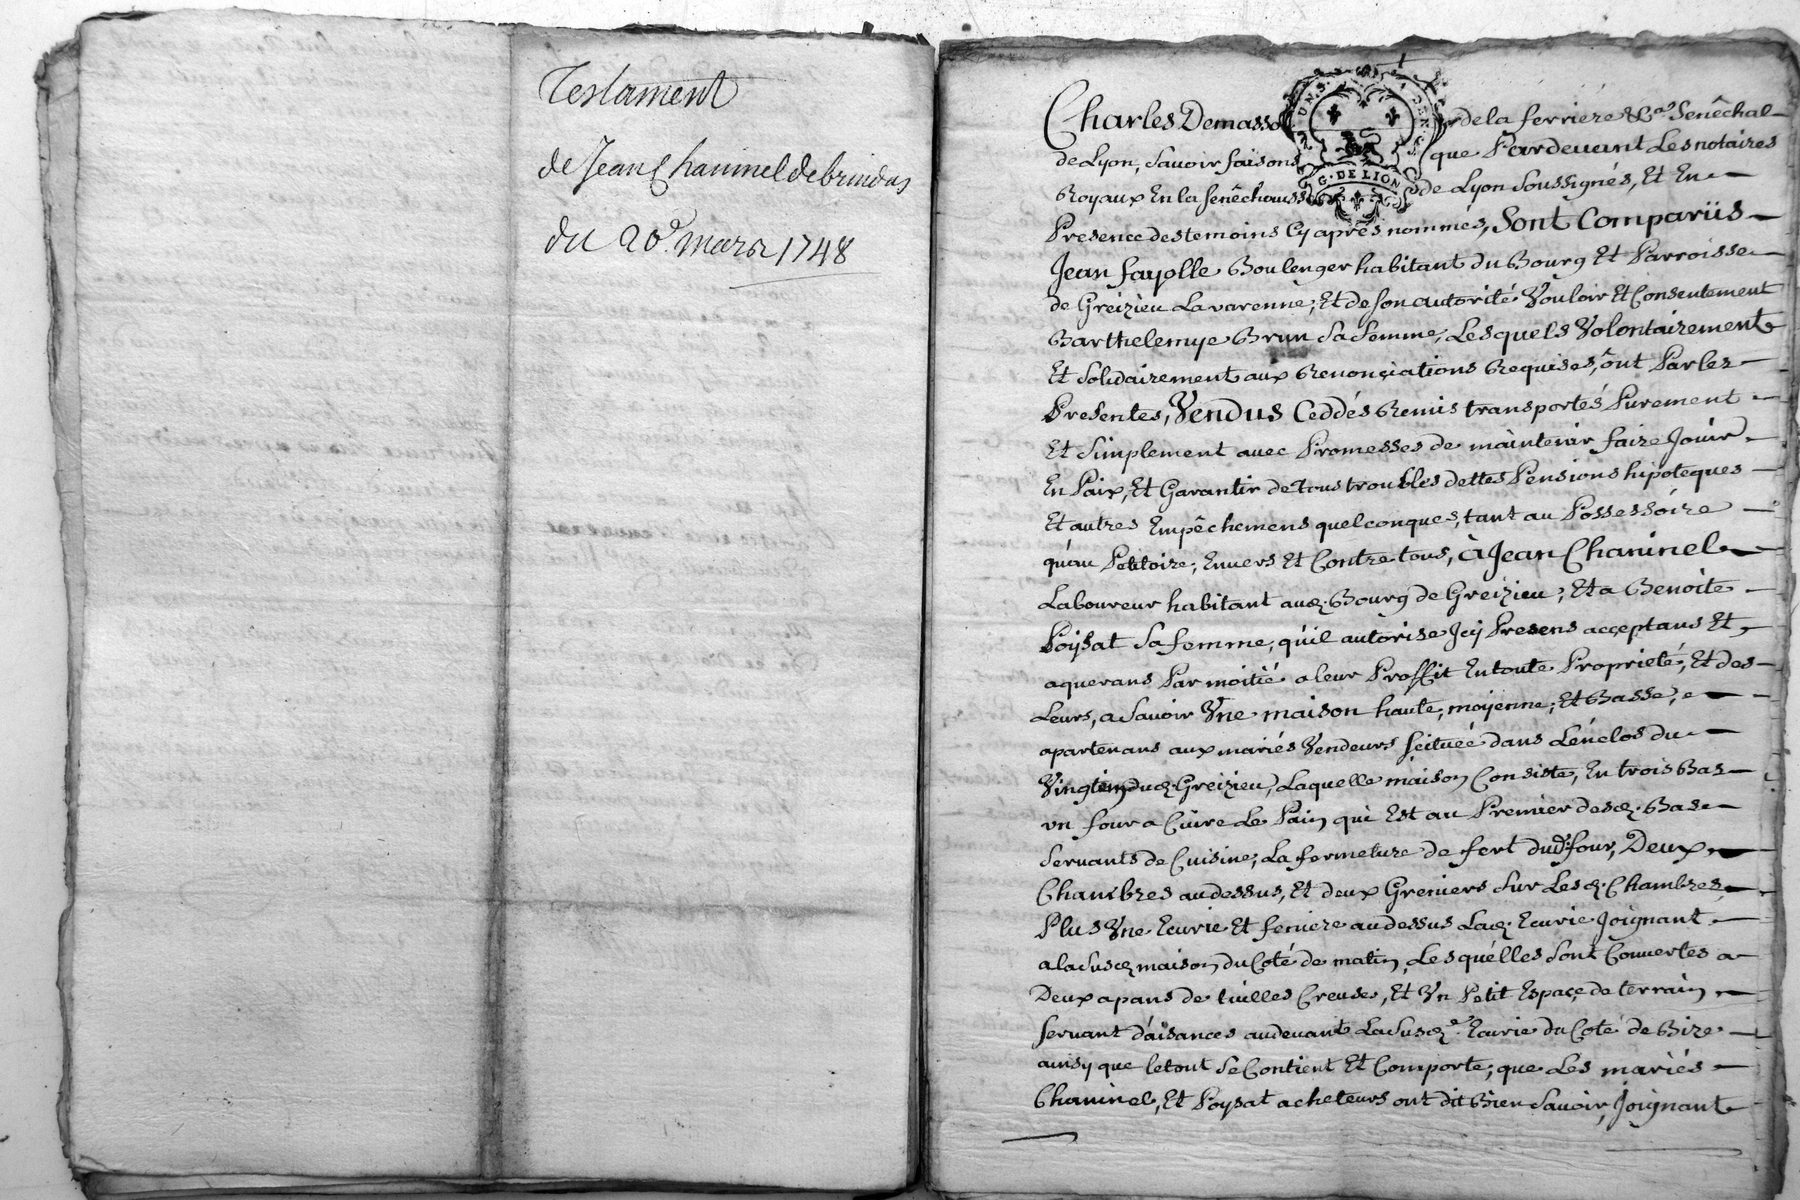 Testament
de Jean Chaninel de brindas
du 20e. mars 1748
Charles Demasso de la ferriere &ca. Senêchal
de Lyon, Savoir faisons que Pardevant Les notaires
Royaux En la Senêchaussée de Lyon Soussignés, Et En
Presence des temoins Cy aprês nommés, Sont Comparüs
Jean fayolle Boulenger habitant du Bourg Et Parroisse
de Greizieu Lavarenne, Et de son autorité Vouloir Et Consentement
Barthelemye Brun Sa femme, Lesquels Volontairement
Et Solidairement aux Renonçiations Requises, ônt Par les
Presentes, Vendus Ceddés Remis transportés Purement
Et Simplement avec Promesses de maintenir faire Joüir
En Paix, Et Garantir de tous troubles dettes Pensions hipoteques
Et autres Empêchemens quelconques, tant au Possessóire
qu'au Petitoire, Envers Et Contre tous, à Jean Chaninel
Laboureur habitant aud. Bourg de Greizieu, Et a Benoite
Poÿsat Sa femme, qu'il autorise Jcÿ Presens acçeptans Et
aquerans Par moitié a leur Proffit En toute Proprieté, Et des
Leurs, a Savoir Vne maison haute, moÿenne, Et Basse,
apartenans aux mariés Vendeurs Scituée dans L'énclos du
Vingtin dud. Greizieu, Laquelle maison Consiste, En trois Bas
vn four a Cuire Le Pain qui Est au Premier desd. Bas
Servants de Cuisine, La fermeture de fert dud. four, Deux
Chambres audessus, Et deux Greniers Sur Lesd. Chambres
Plus Vne Ecurie Et feniere audessus Lad. Ecurie Joignant
a la Susd. maison du Coté de matin, Lesquélles Sont Couvertes a
Deux apans de tuilles Creuse, Et Vn Petit Espaçe de terrain
Servant d'aïsances audevant La Susde. Ecurie du Coté de Bize
ainsy que le tout Se Contient Et Comporte, que Les mariés
Chaninel, Et Poysat acheteurs ont dit Bien Savoir, Joignant
G. DE LION